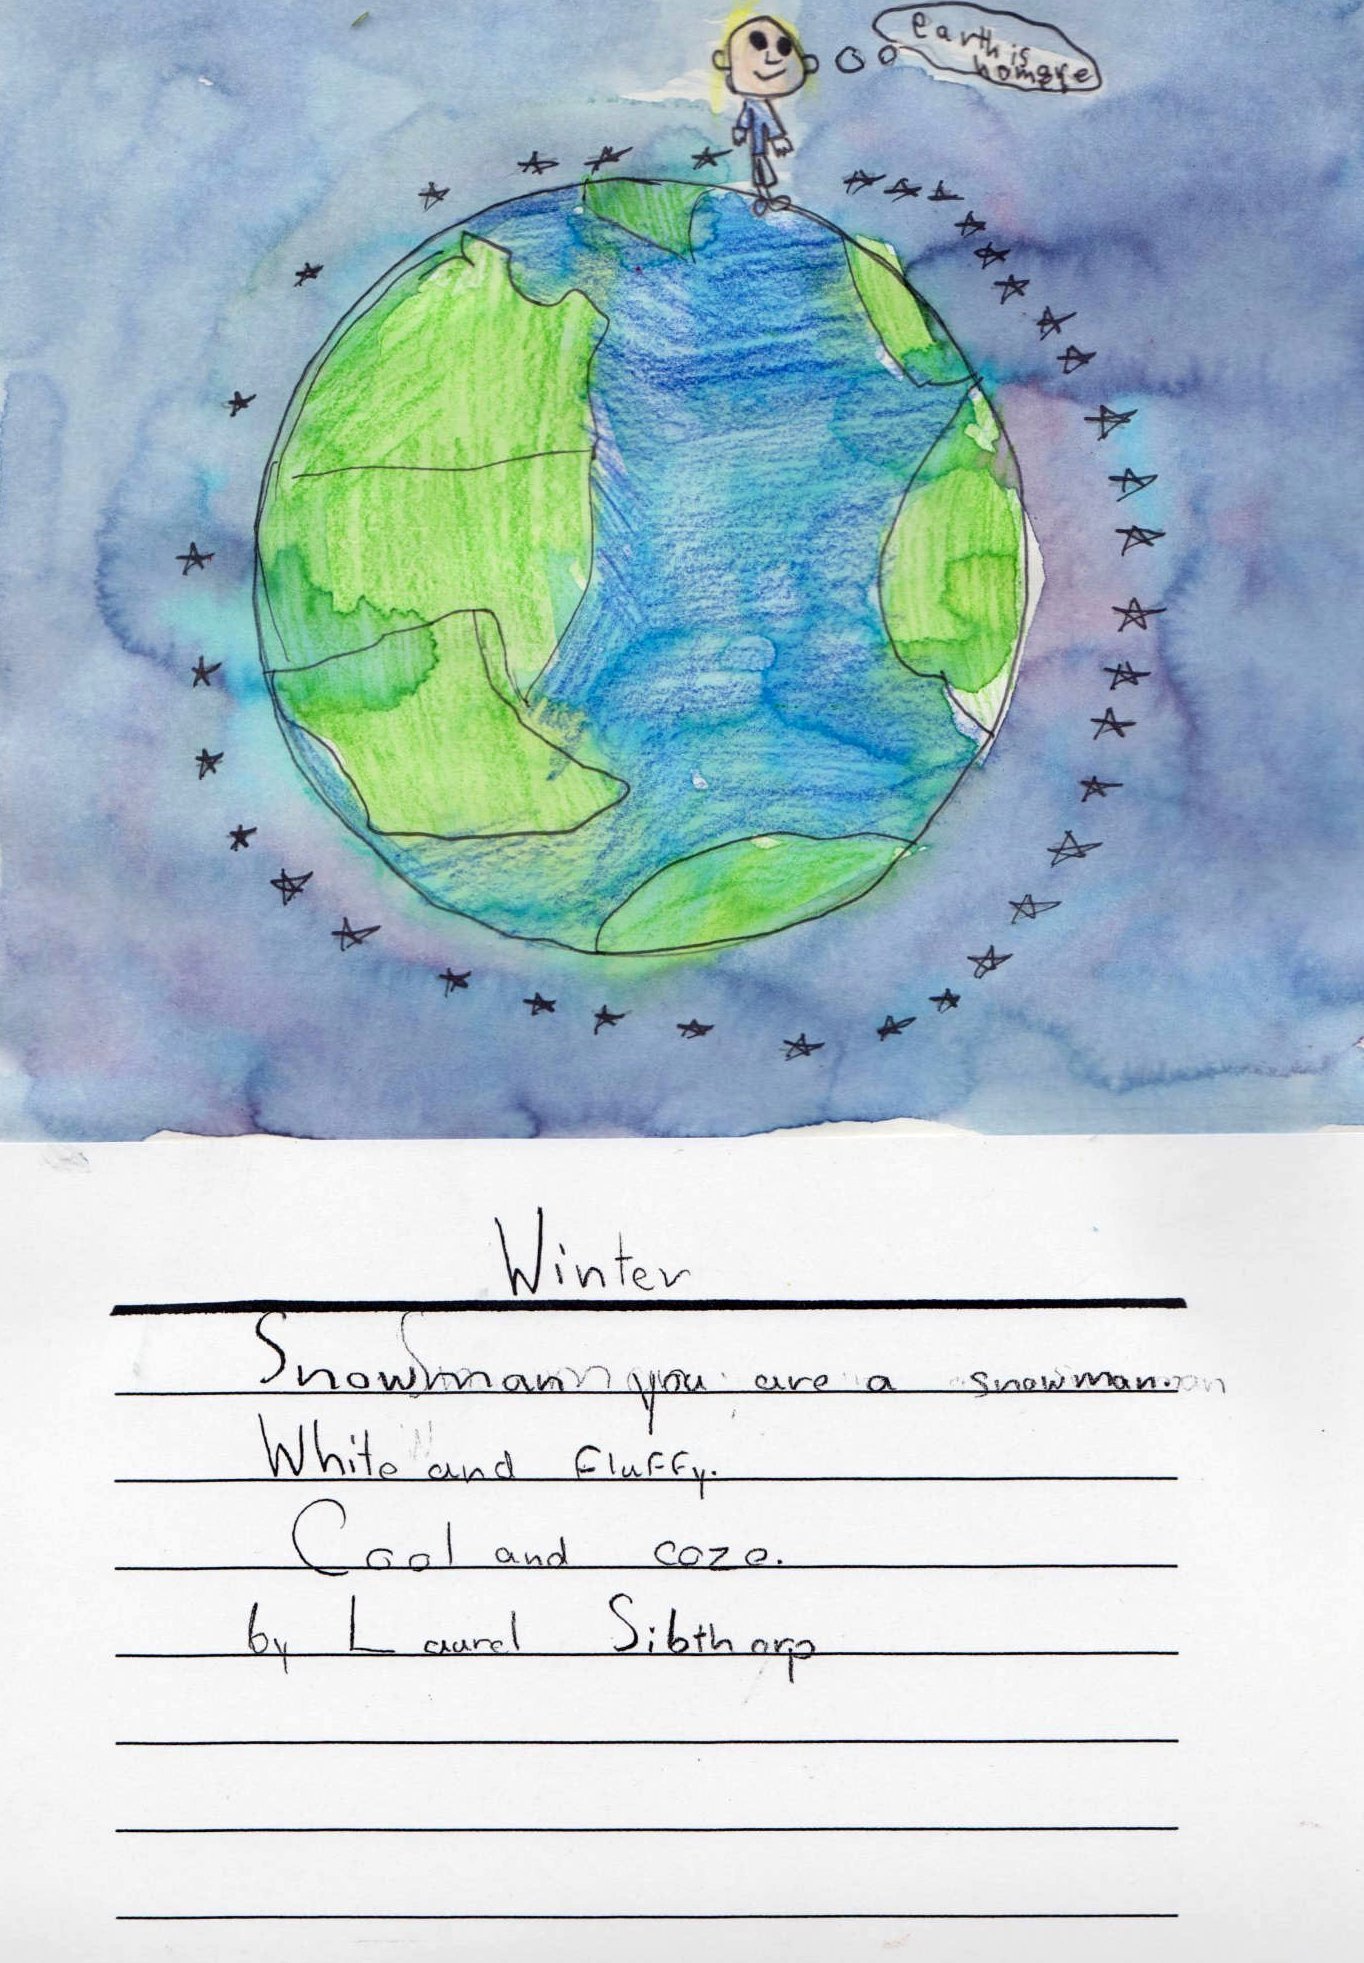 earth is
Winter
Snowman you are a snowman.
White and fluffy.
Cool and coze.
by Laurel Sibthorp